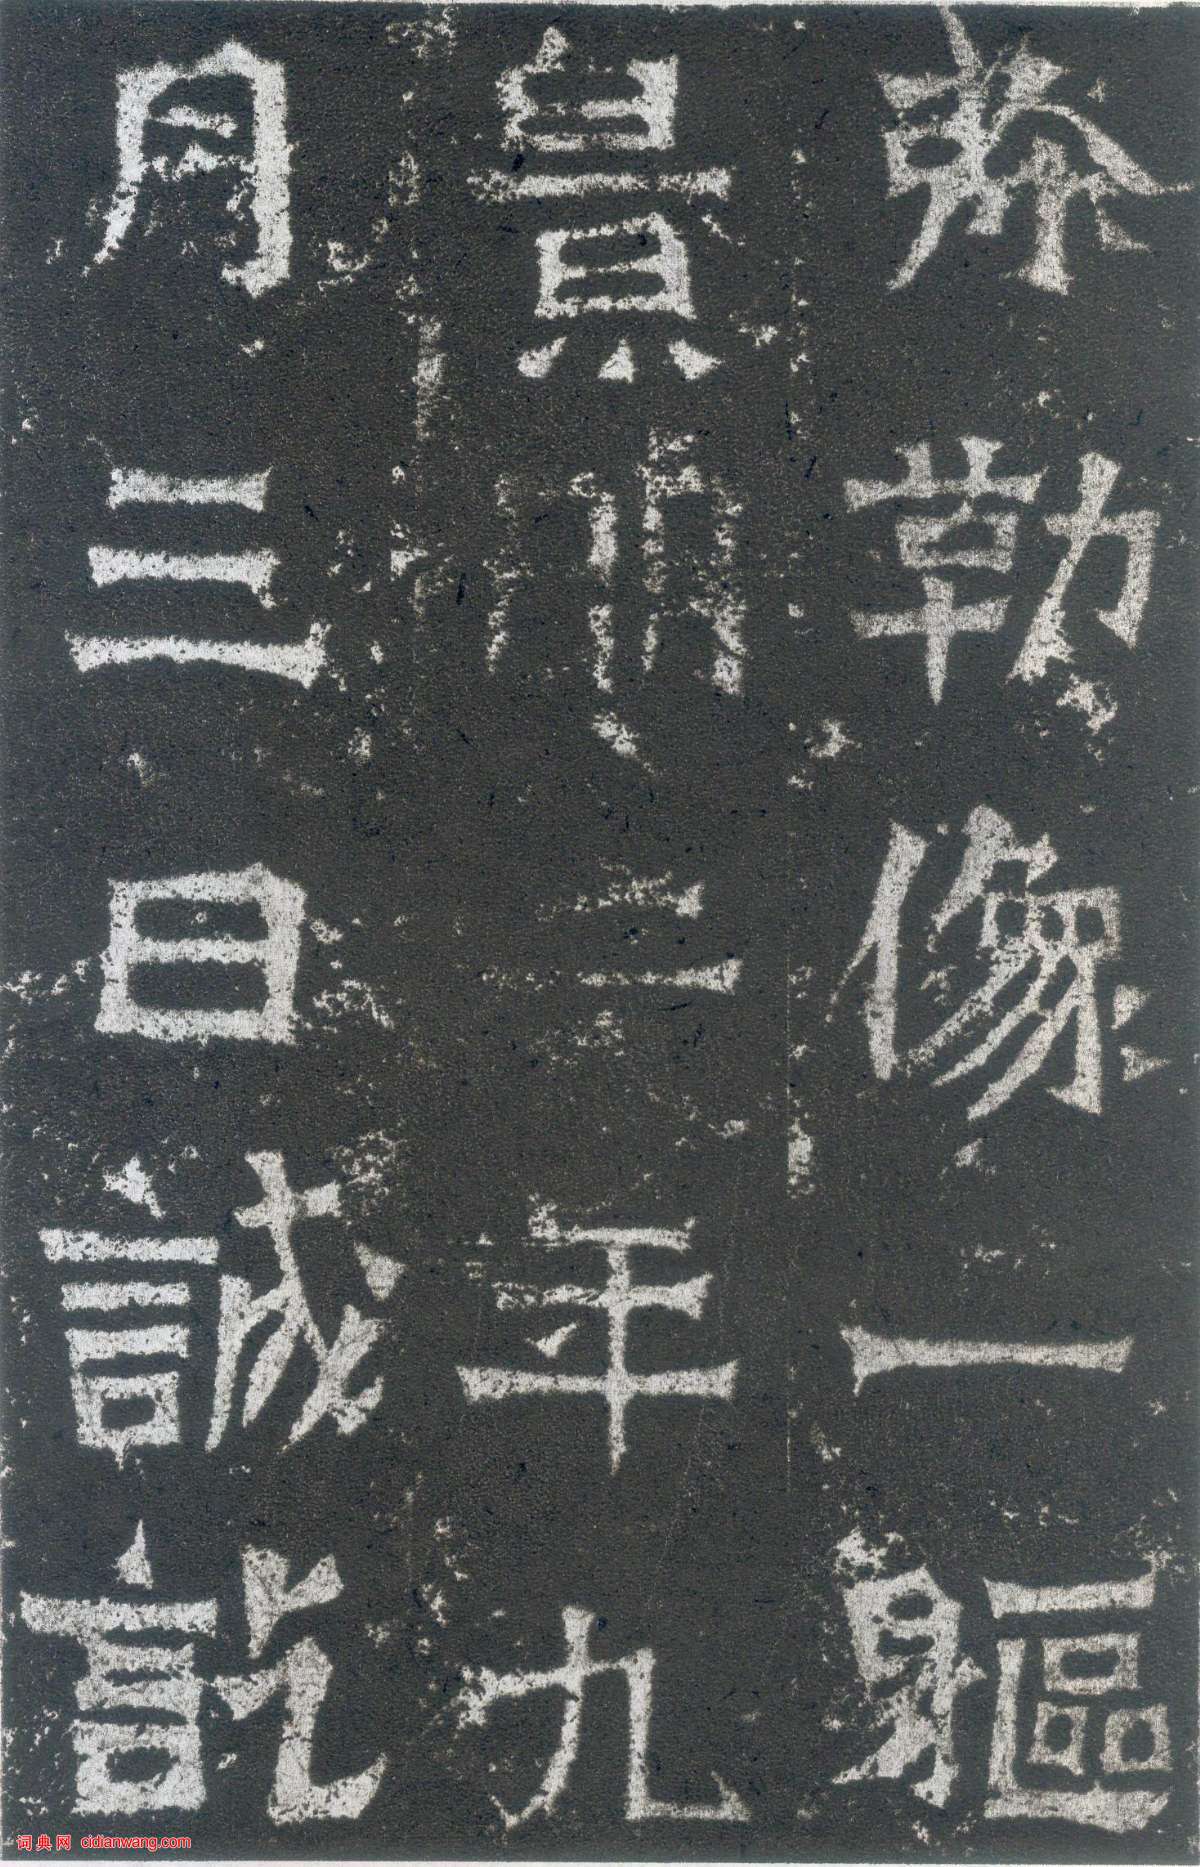 弥勒像一軀
景明二年九
月三日誡訖
词典网 cidianwang.com